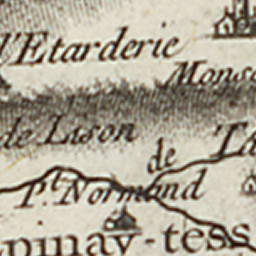 l'Etarderie
de Lison
de
P.t Normand
pinay-tess